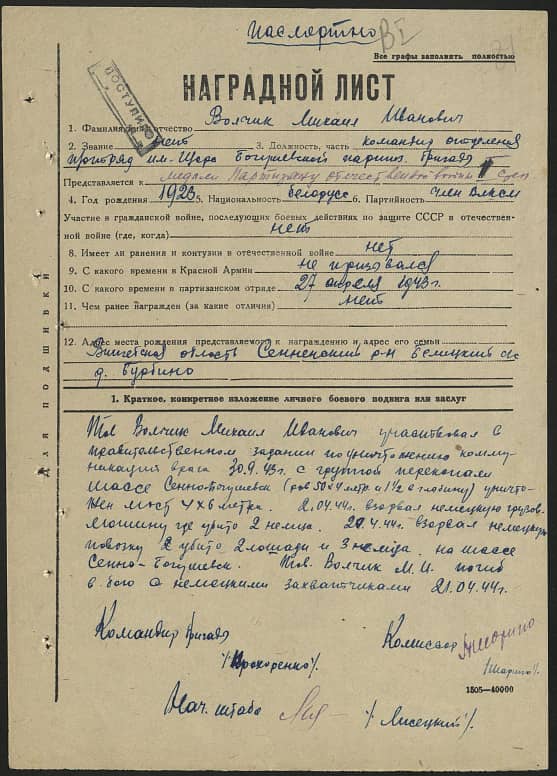 посмертно
ВІ
Все графы заполнять полностью
ПОСТУПИЛО
НАГРАДНОЙ ЛИСТ
1. Фамилия, имя и отчество Волчик Михаил Иванович
2. Звание нет 3. Должность, часть командир отделения
отряд им. Щорса Богушевской партиз. бригады
Представляется к медали Партизану отечественной войны I степ.
4. Год рождения 1923 5. Национальность белорусс 6. Партийность член ВЛКСМ
Участие в гражданской войне, последующих боевых действиях по защите СССР в отечествен-
ной войне (где, когда) нет
8. Имеет ли ранения и контузии в отечественной войне нет
9. С какого времени в Красной Армии не призывался
10. С какого времени в партизанском отряде 27 апреля 1943г.
11. Чем ранее награжден (за какие отличия) нет
12. Адрес места рождения представляемого к награждению и адрес его семьи
Витебская область Сенненский р-н Белицкий с/с
д. Бурбино
Для подшивки
1. Краткое, конкретное изложение личного боевого подвига или заслуг
Тов. Волчик Михаил Иванович участвовал в
правительственном задании по уничтожению комму-
никаций врага 30.9.43г. с группой перекопали
шоссе Сенно-Богушевск (ров 50х4 метр и 1½ в глубину) уничто-
жен мост 4х6 метра. 2.04.44г. взорвал немецкую грузов.
машину где убито 2 немца. 20.4.44г. взорвал немецкую
повозку убито 2 лошади и 3 немца на шоссе
Сенно-Богушевск. Тов. Волчик М.И. погиб
в бою с немецкими захватчиками 21.04.44г.
Командир бригады Комиссар
/Прохоренко/. /Шарино/.
1505—40000
Нач. штаба /Лисецкий/.